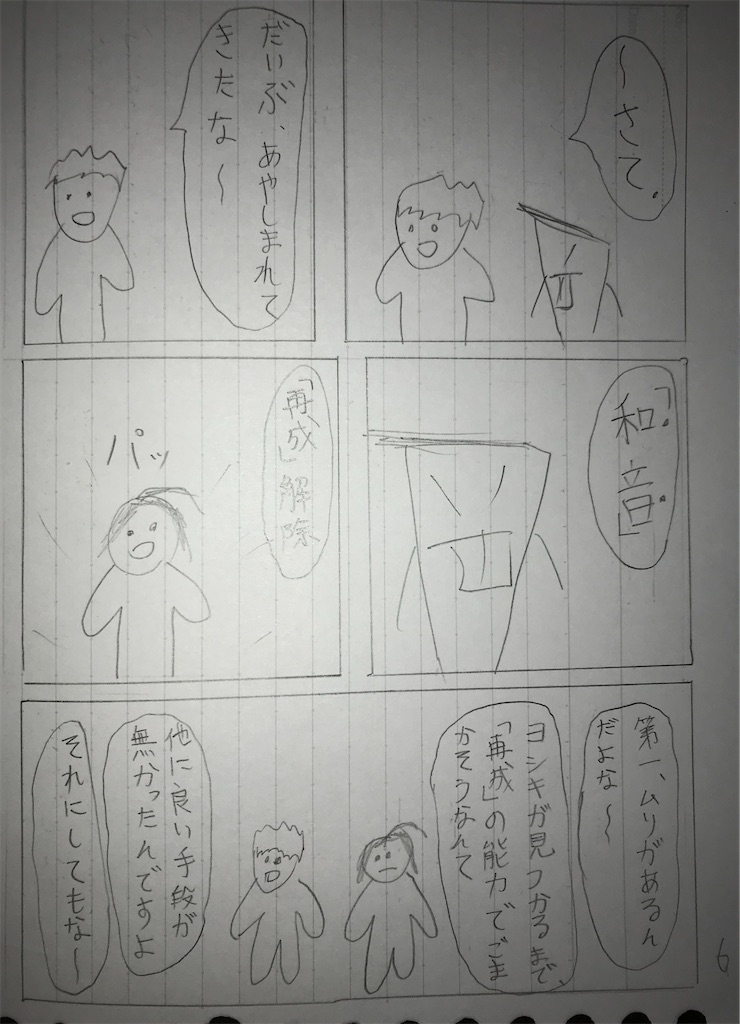 ～さて、
だいぶ、あやしまれて
きたな～
「和音」
「再成」解除
パッ
第一、ムリがあるん
だよな～
ヨシキが見つかるまで、
「再成」の能力でごま
かそうなんて
他に良い手段が
無かったんですよ
それにしてもな～
6